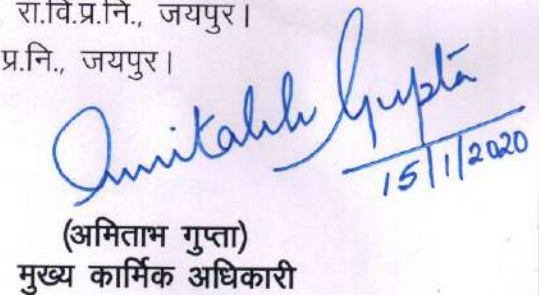 रा.वि.प्र.नि., जयपुर।
प्र.नि., जयपुर।
Amitabh Gupta
15/1/2020
(अमिताभ गुप्ता)
मुख्य कार्मिक अधिकारी